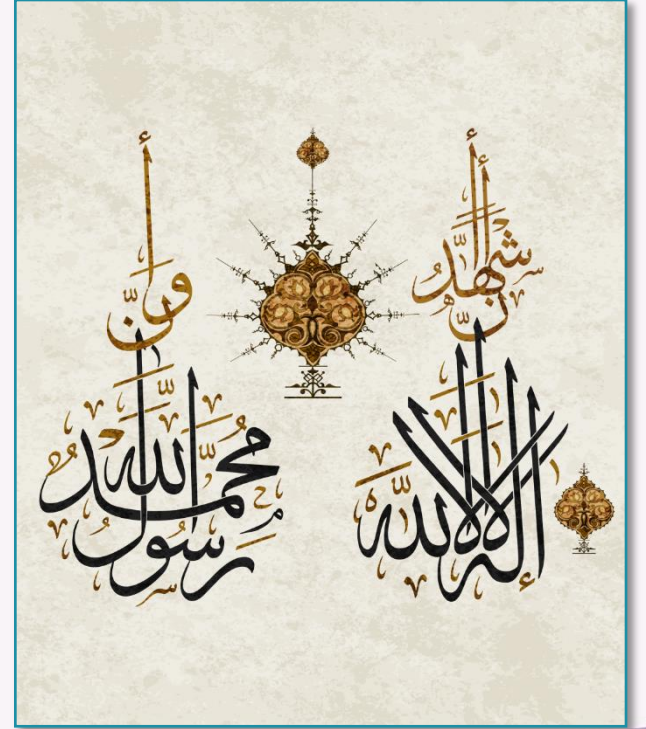 أشهد أن
لا إله إلا الله
وأن
محمد رسول الله